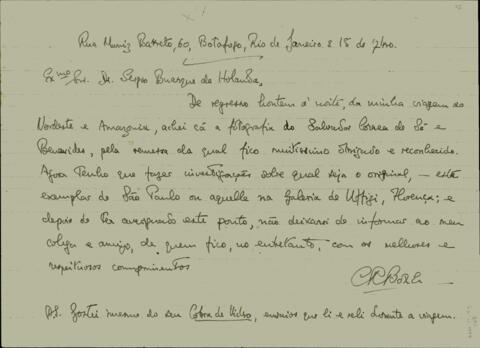 Rua Muniz Barreto, 60, Botafogo, Rio de Janeiro 15 de
Exmo Snr. Dr. Sergio Buarque de Holanda,
De regresso hontem á noite, da minha viagem ao
Nordeste e Amazonia, achei cá a fotografia do Salvador Correa de Sá e
Benavides, pela remessa da qual fico muitissimo obrigado e reconhecido.
Agora tenho que fazer investigações sobre qual seja o original, — este
exemplar de São Paulo ou aquelle na Galeria de Uffizi, Florença; e
depois de ter averiguado este ponto, não deixarei de informar ao meu
colega e amigo, de quem fico, no entretanto, com os melhores e
respeituosos comprimentos
CRBoxer
P.S. Gostei imenso do seu Cobra de Vidro, ensaios que li e reli durante a viagem.